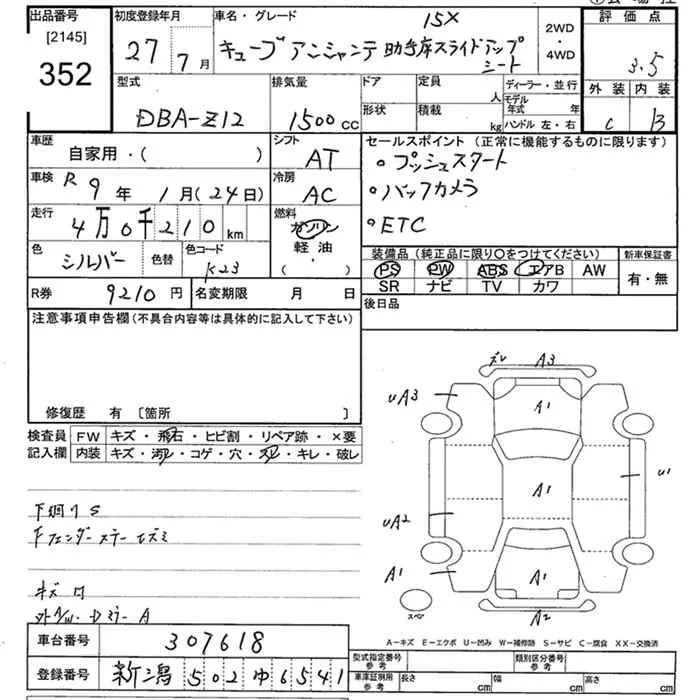 出品番号
[2145]
352
初度登録年月
27年 7月
車名・グレード
15X
キューブ アンシャンテ 助手席スライドアップ
シート
2WD
・
4WD
評価点
3.5
外装 内装
C B
型式
DBA-Z12
排気量
1500cc
ドア 定員 人
形状 積載 kg
ディーラー・並行
モデル年式 年
ハンドル 左・右
車歴
自家用・( )
シフト
AT
車検 R 9年 1月(24日)
冷房
AC
走行
4万0千210km
燃料
ガソリン
軽油
・
( )
色 シルバー 色替 色コード K23
セールスポイント (正常に機能するものに限ります)
○プッシュスタート
○バックカメラ
○ETC
装備品 (純正品に限り○をつけてください)
PS PW ABS エアB AW
SR ナビ TV カワ
新車保証書
有・無
R券 9210円 名変期限 月 日
後日品
注意事項申告欄 (不具合内容等は具体的に記入して下さい)
修復歴 有 [箇所 ]
検査員 FW キズ・飛石・ヒビ割・リペア跡・×要
記入欄 内装 キズ・汚レ・コゲ・穴・スレ・キレ・破レ
下廻り S
キズ
A3
uA3
A1
A1
u1
uA2
A1
A1
スペア
A2
A－キズ E－エクボ U－凹み W－補修跡 S－サビ C－腐食 XX－交換済
車台番号 307618
登録番号 新潟 502 ゆ 6541
型式指定番号
参考
類別区分番号
参考
車庫証明用
参考
長さ cm 幅 cm 高さ cm